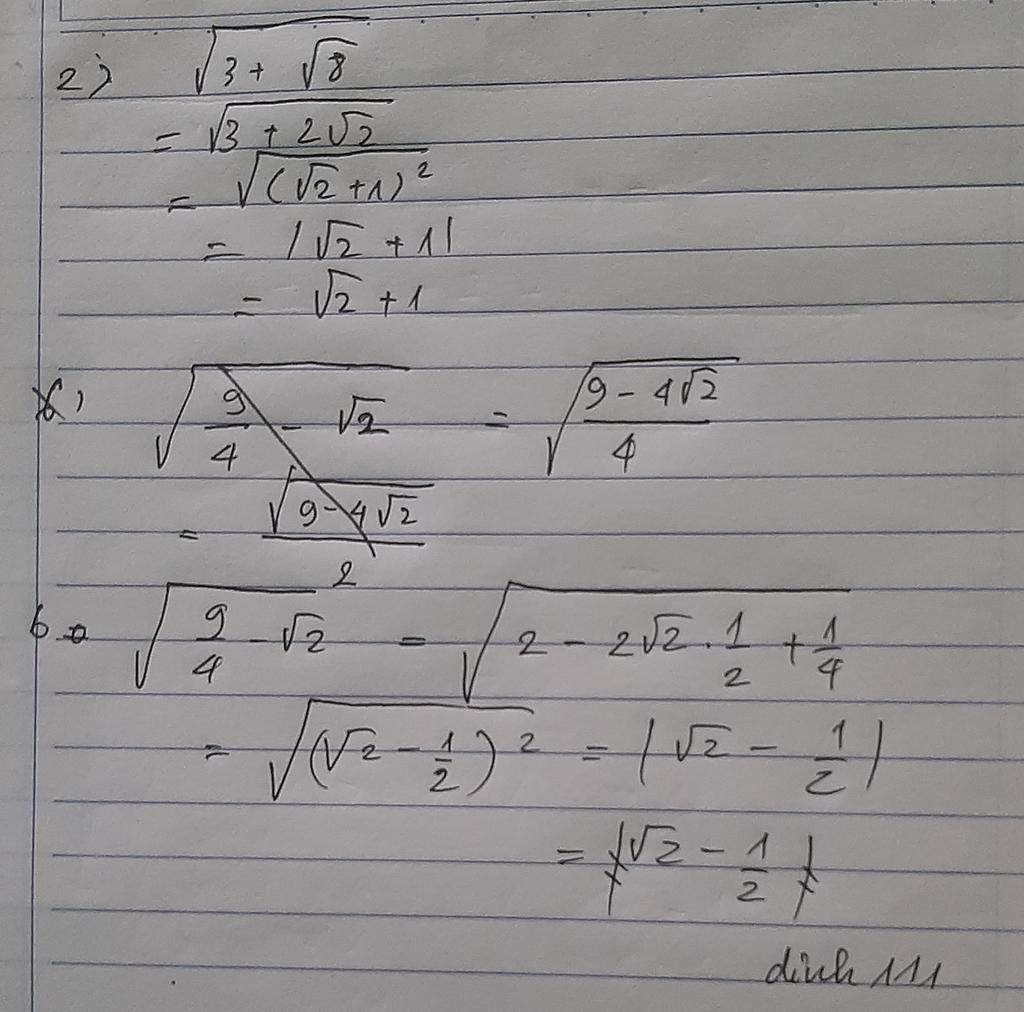 2) √(3 + √8)
= √(3 + 2√2)
= √((√2 + 1)²)
= |√2 + 1|
= √2 + 1
6) √(9/4 - √2) = √((9 - 4√2)/4)
= √(9 - 4√2)/2
6. √(9/4 - √2) = √(2 - 2√2 . 1/2 + 1/4)
= √((√2 - 1/2)²) = |√2 - 1/2|
= √2 - 1/2
dinh 111